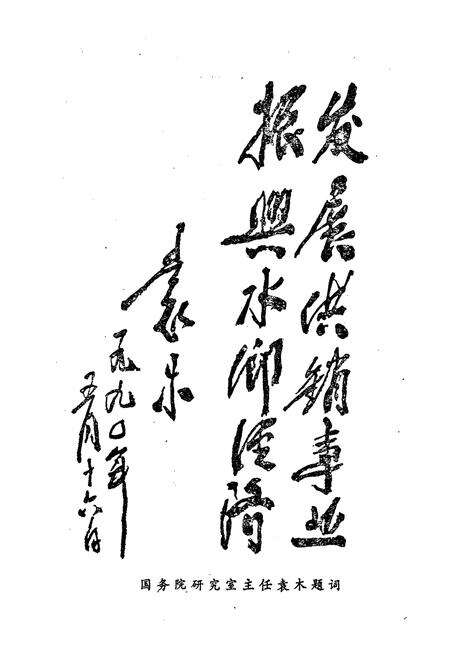 发展供销事业
振興水乡经济
袁木
一九九〇年
五月十六日
国务院研究室主任袁木题词